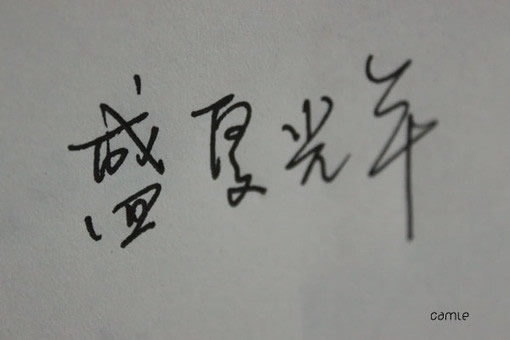 盛夏光年
camle